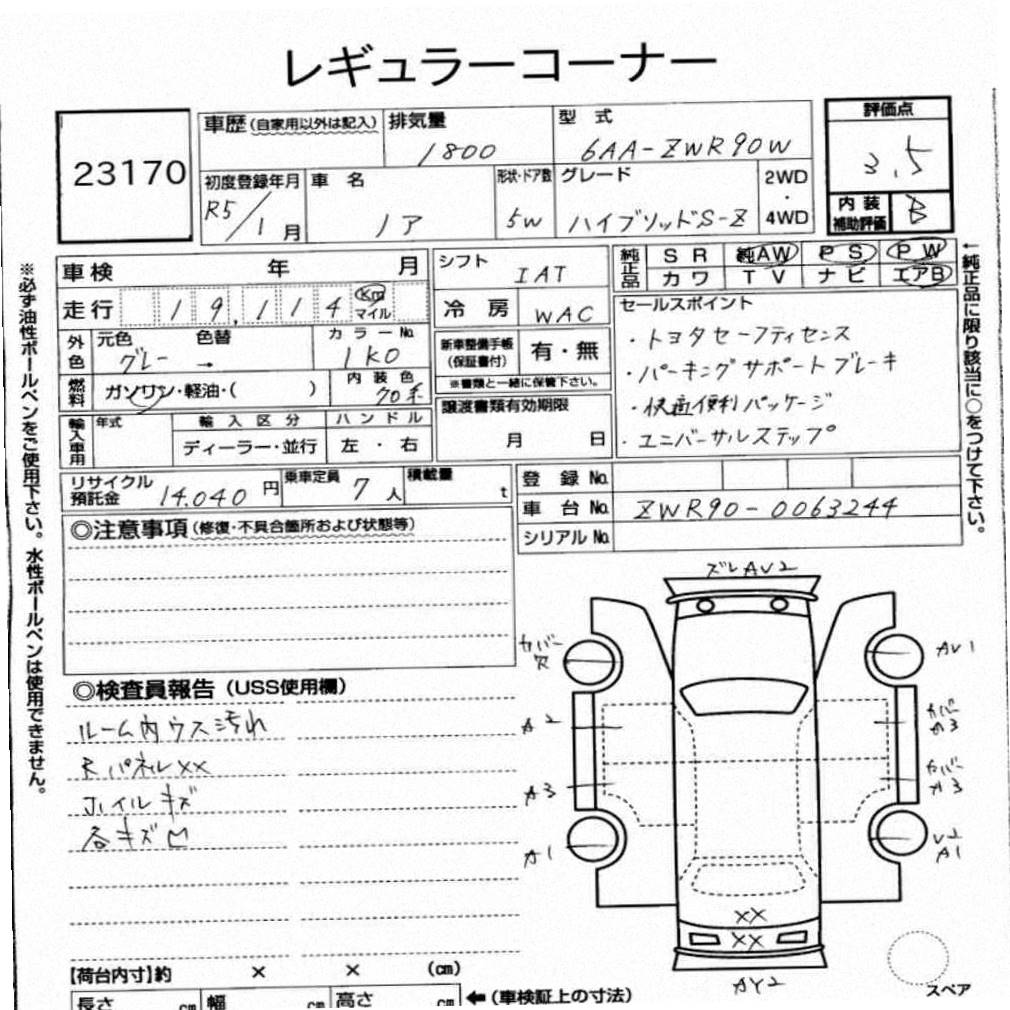 レギュラーコーナー
23170
車歴(自家用以外は記入)
排気量
1800
型 式
6AA-ZWR90W
評価点
3.5
初度登録年月
R5/1月
車 名
ノア
形状・ドア数
5W
グレード
ハイブリッドS-Z
2WD
・
4WD
内 装
補助評価
B
車検 年 月
走行 19,114 Km マイル
シフト
IAT
冷 房 WAC
純正品 SR 純AW PS PW
カワ TV ナビ エアB
外色 元色 色替 カラーNo.
グレー → 1K0
燃料 ガソリン・軽油・( )
内 装 色
70系
新車整備手帳
(保証書付)
有・無
※書類と一緒に保管下さい。
セールスポイント
・トヨタセーフティセンス
・パーキングサポートブレーキ
・快適便利パッケージ
・ユニバーサルステップ
輸入車用 年式 輸 入 区 分 ハ ン ド ル
ディーラー・並行 左 ・ 右
譲渡書類有効期限
月 日
リサイクル
預託金
14.040円
乗車定員
7人
積載量
t
登 録 No.
車 台 No. ZWR90-0063244
シリアル No.
◎注意事項(修復・不具合箇所および状態等)
◎検査員報告(USS使用欄)
ルーム内ウス汚れ
Rパネルxx
ホイルキズ
各キズ凹
ズレAU2
カバー
欠
AU1
A2
カバー
A3
A3
カバー
A3
A1
U2
A1
XX
XX
AY2
スペア
【荷台内寸】約 × × (cm)
長さ cm 幅 cm 高さ cm
←(車検証上の寸法)
※必ず油性ボールペンをご使用下さい。水性ボールペンは使用できません。
←純正品に限り該当に○をつけて下さい。